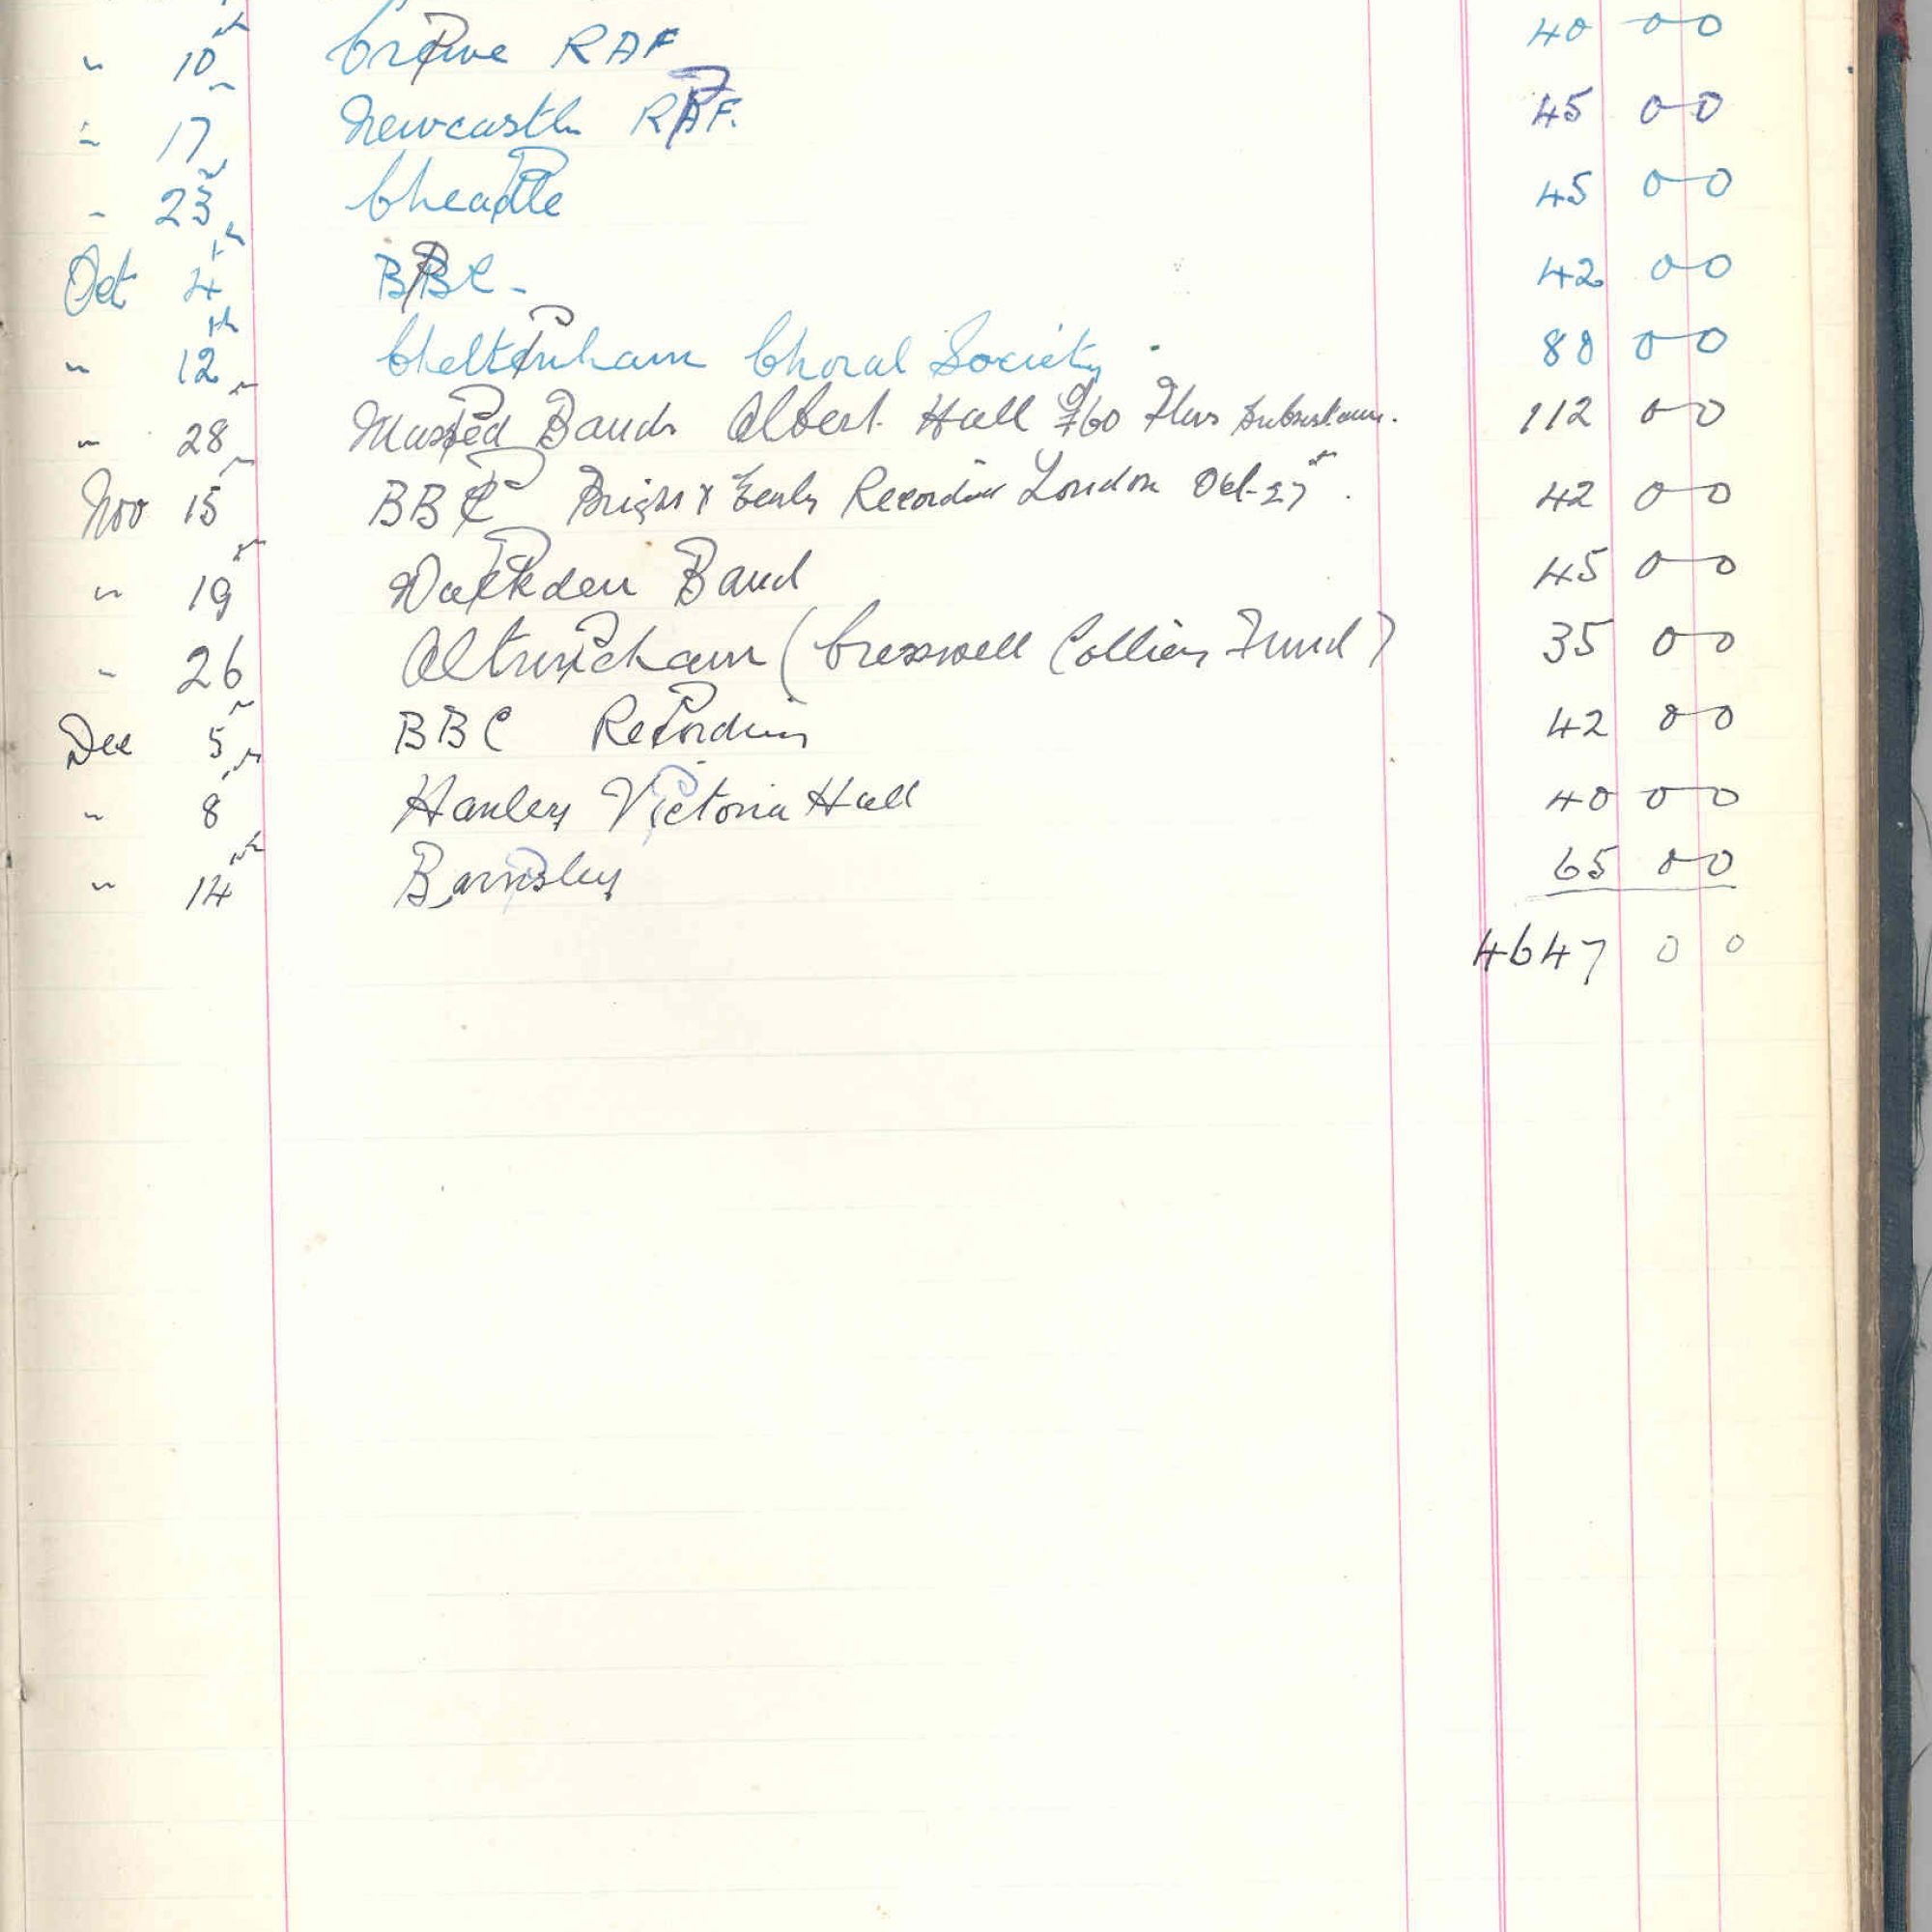 " 10th Crewe RAF 40 0 0
" 17th Newcastle RAF. 45 0 0
" 23rd Cheadle 45 0 0
Oct 4th BBC - 42 0 0
" 12th Cheltenham Choral Society. 80 0 0
" 28th Massed Bands Albert Hall £60 Plus Subsistance. 112 0 0
Nov 15th BBC Bright & Early Recording London Oct-27th. 42 0 0
" 19th Band 45 0 0
" 26 Altrincham (Cresswell Colliery Fund) 35 0 0
Dec 5th BBC Recording 42 0 0
" 8th Hanley Victoria Hall 40 0 0
" 14th Barnsley 65 0 0
4647 0 0